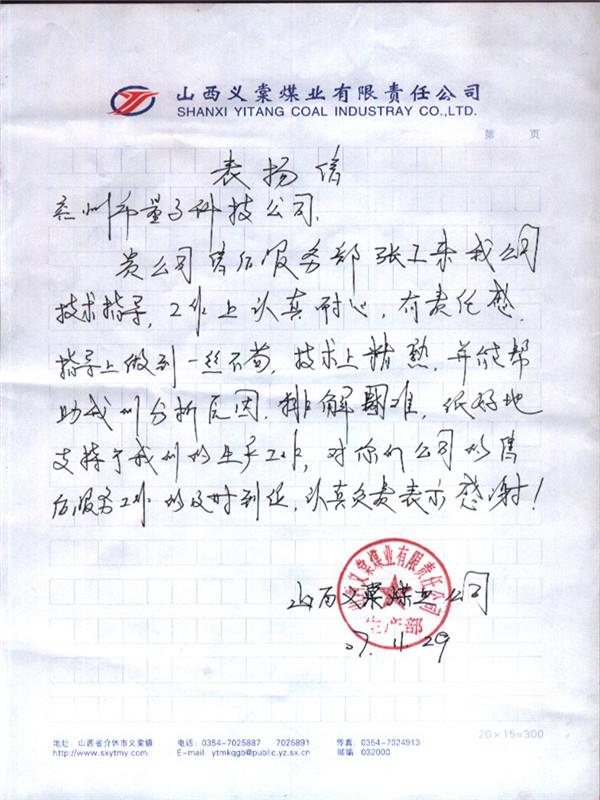 山西义棠煤业有限责任公司
SHANXI YITANG COAL INDUSTRAY CO.,LTD.
第 页
表扬信
兰州市量子科技公司.
贵公司售后服务部张工来我公司
技术指导，工作上认真耐心，有责任感，
指导上做到一丝不苟，技术上精熟，并能帮
助我们分析原因，排解困难，很好地
支持了我们的生产工作，对你们公司的售
后服务工作的及时到位，认真负责表示感谢！
山西义棠煤业有限责任公司
生产部
山西义棠煤业公司
07.11.29
20×15=300
地址：山西省介休市义棠镇 电话：0354-7025887 7025891 传真：0354-7024913
http://www.sxytmy.com E-mail: ytmkqgb@public.yz.sx.cn 邮编：032000